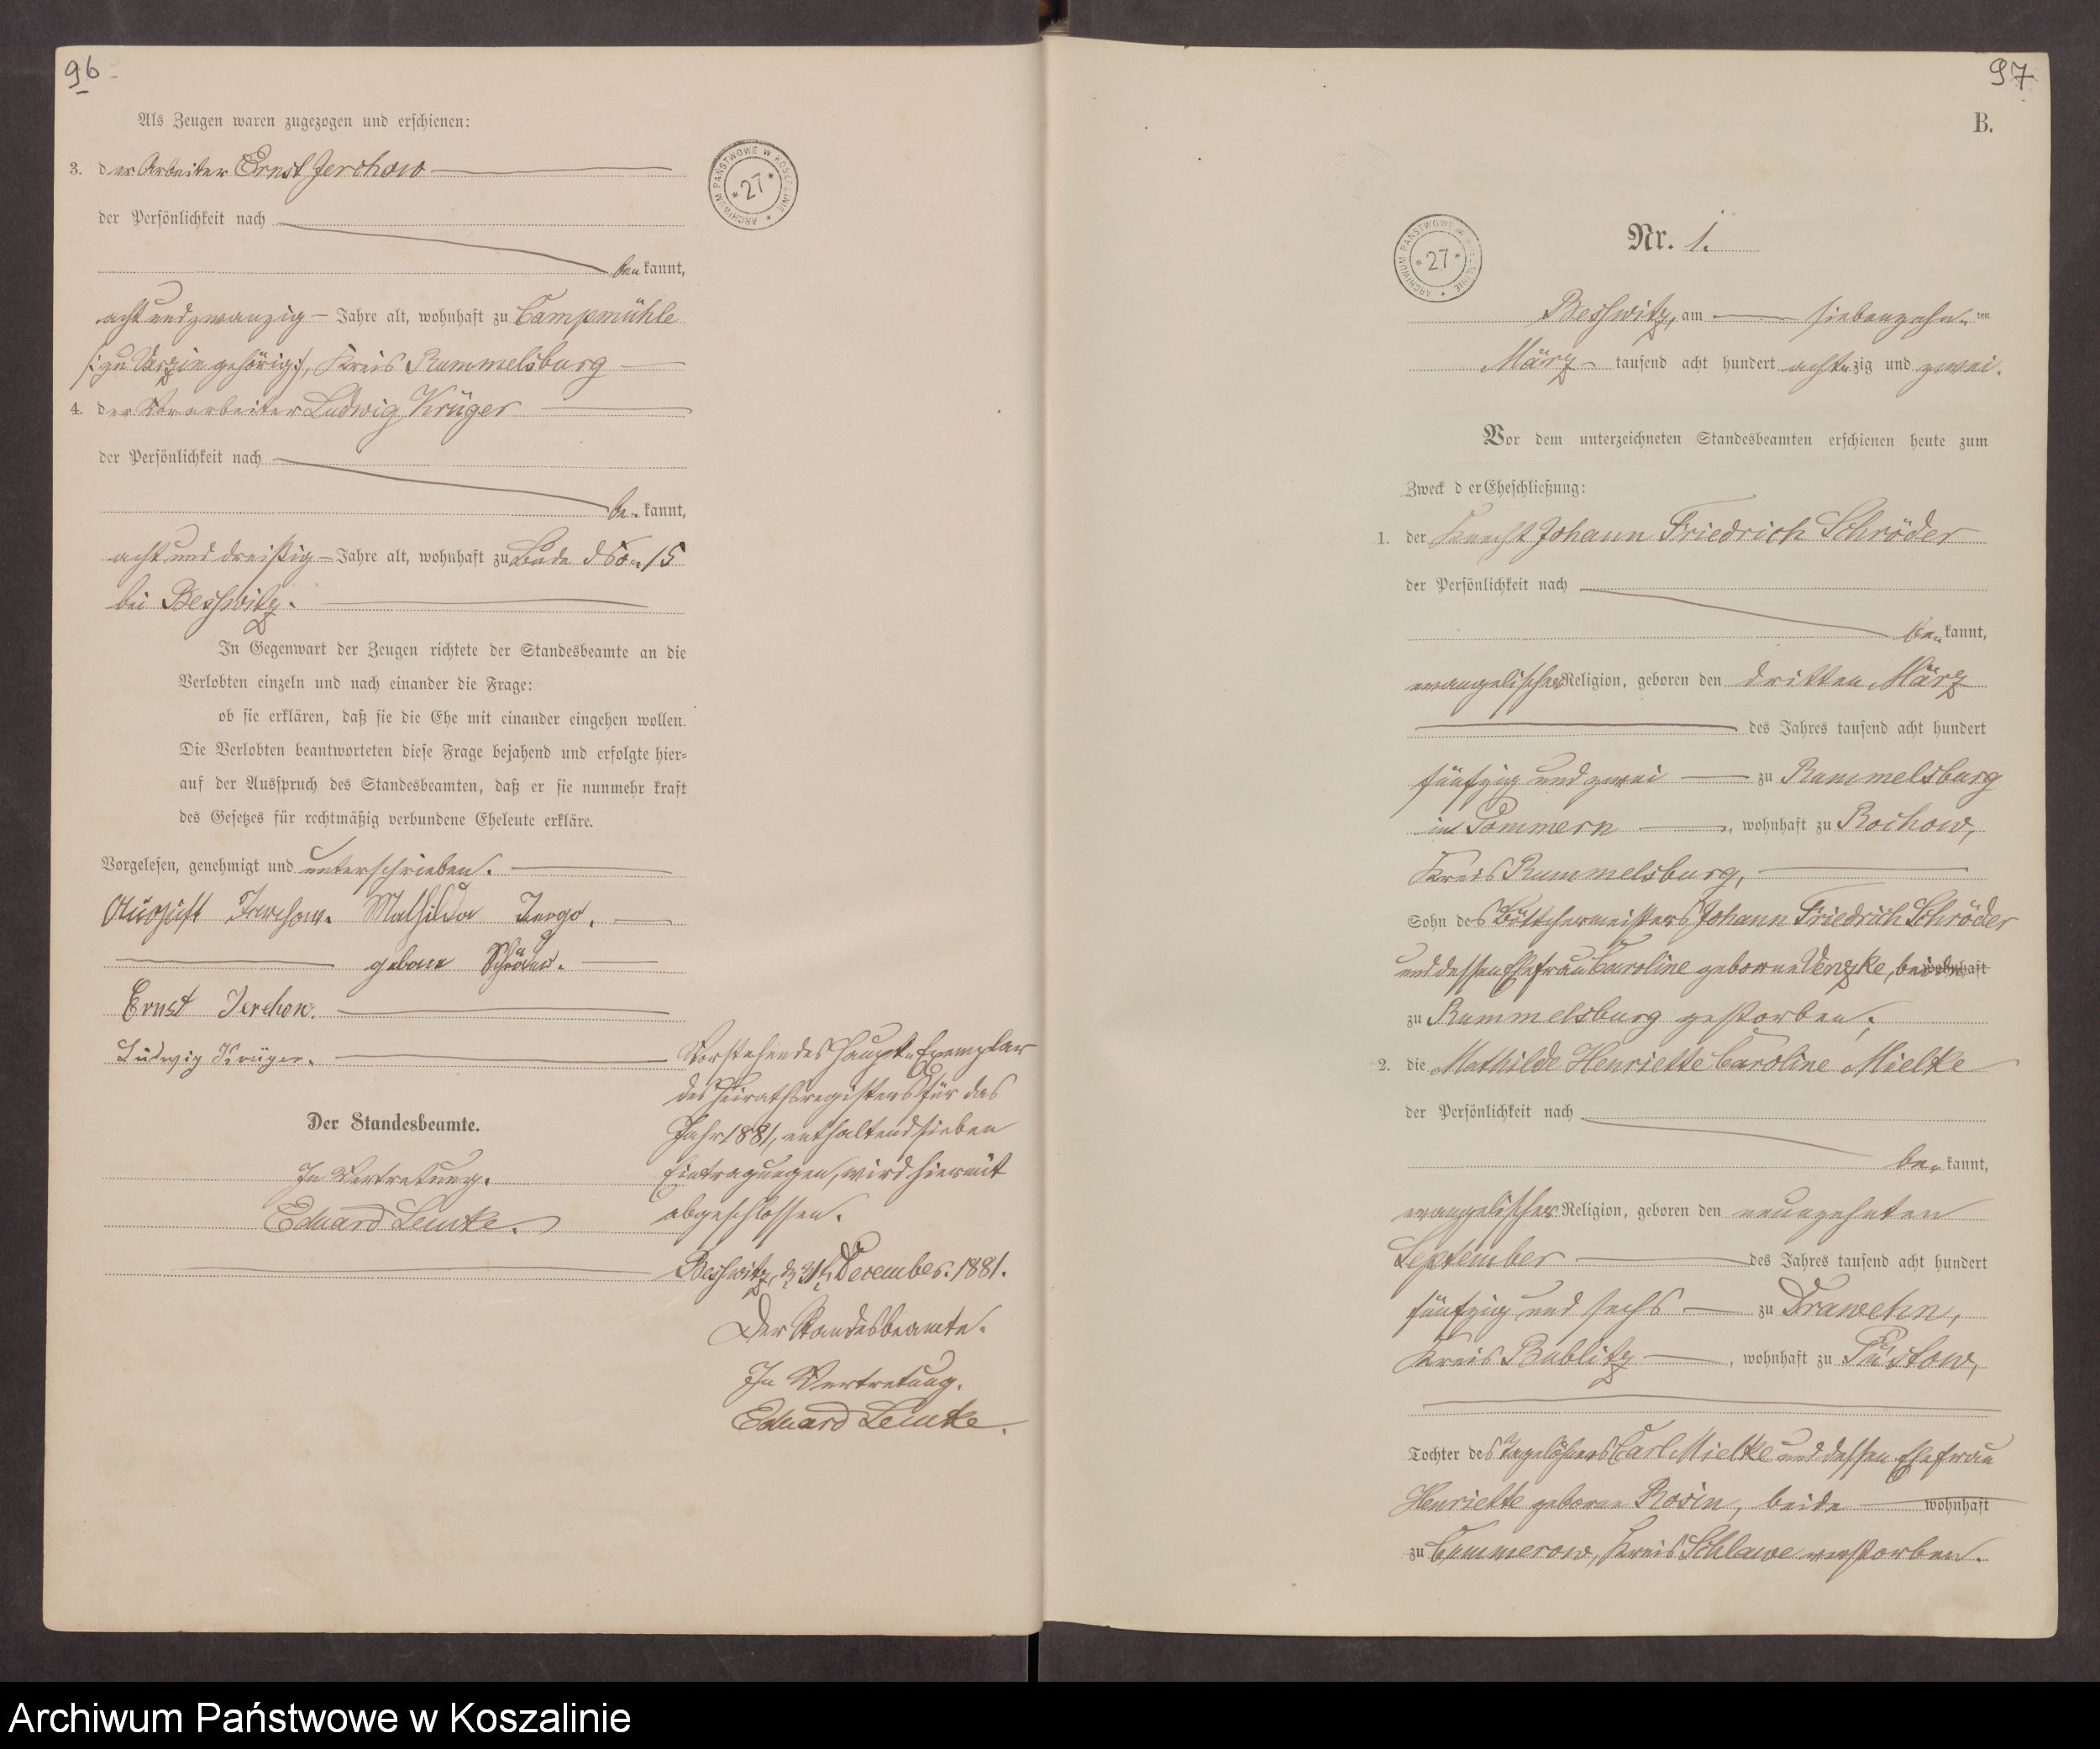 96
Als Zeugen waren zugezogen und erschienen:
3. der Arbeiter Ernst Jerchow
der Persönlichkeit nach
bekannt,
acht und zwanzig Jahre alt, wohnhaft zu Campmühle
/: zu Varzin gehörig :/, Kreis Rummelsburg
4. der Vorarbeiter Ludwig Krüger
der Persönlichkeit nach
bekannt,
acht und dreißig Jahre alt, wohnhaft zu Bude 15
bei Beßwitz.
In Gegenwart der Zeugen richtete der Standesbeamte an die
Verlobten einzeln und nach einander die Frage:
ob sie erklären, daß sie die Ehe mit einander eingehen wollen.
Die Verlobten beantworteten diese Frage bejahend und erfolgte hier=
auf der Ausspruch des Standesbeamten, daß er sie nunmehr kraft
des Gesetzes für rechtmäßig verbundene Eheleute erkläre.
Vorgelesen, genehmigt und unterschrieben.
August Jerchow. Mathilda
geborne
Ernst Jerchow.
Ludwig Krüger.
Der Standesbeamte.
In Vertretung.
Eduard Lemke.
Vorstehendes Haupt-Exemplar
des Heirathsregisters für das
Jahr 1881, enthaltend sieben
Eintragungen, wird hiermit
abgeschlossen.
Beßwitz, d. 31. December 1881.
Der Standesbeamte.
In Vertretung.
Eduard Lemke.
ARCHIWUM PAŃSTWOWE W KOSZALINIE * 27 *
97
B.
ARCHIWUM PAŃSTWOWE W KOSZALINIE * 27 *
Nr. 1.
Beßwitz, am siebenzehn-ten
März tausend acht hundert achtzig und zwei.
Vor dem unterzeichneten Standesbeamten erschienen heute zum
Zweck der Eheschließung:
1. der Knecht Johann Friedrich Schröder
der Persönlichkeit nach
bekannt,
evangelischer Religion, geboren den dritten März
des Jahres tausend acht hundert
fünfzig und zwei zu Rummelsburg
in Pommern, wohnhaft zu Rochow,
Kreis Rummelsburg,
Sohn des Böttchermeisters Johann Friedrich Schröder
und dessen Ehefrau Caroline geborne Venzke, beide wohnhaft
zu Rummelsburg gestorben.
2. die Mathilde Henriette Caroline Mielke
der Persönlichkeit nach
bekannt,
evangelischer Religion, geboren den neunzehnten
September des Jahres tausend acht hundert
fünfzig und sechs zu Drawehn,
Kreis Bublitz, wohnhaft zu Püstow,
Tochter des Tagelöhners Carl Mielke und dessen Ehefrau
Henriette geborne Rosin, beide wohnhaft
zu Cummerow, Kreis Schlawe verstorben.
Archiwum Państwowe w Koszalinie